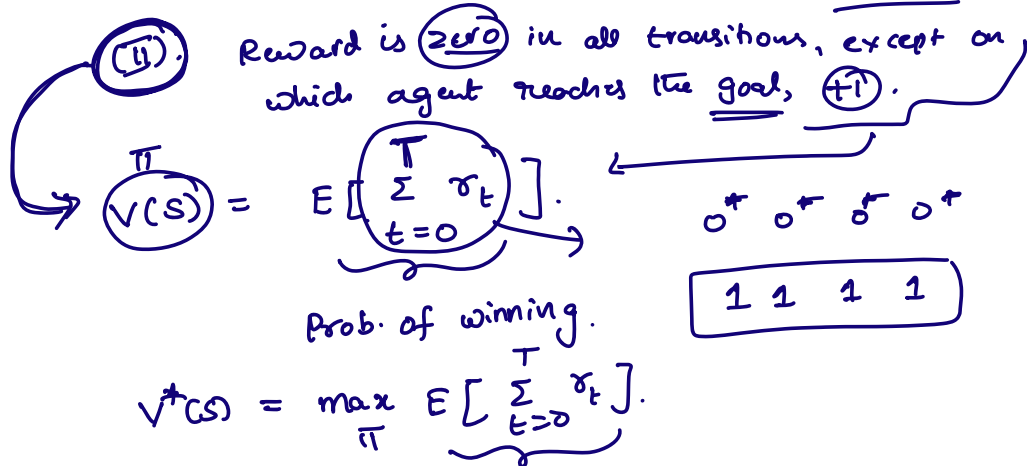 (π). Reward is zero in all transitions, except on
which agent reaches the goal, +1.
V^π(S) = E[ Σ_{t=0}^{T} r_t ].
0* 0* 0* 0*
1 1 1 1
Prob. of winning.
V*(S) = max_π E[ Σ_{t=0}^{T} r_t ].